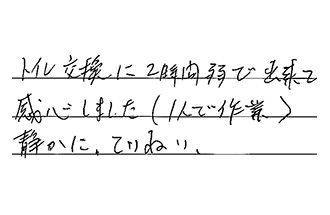 トイレ交換に2時間弱で出来て
感心しました(1人で作業)
静かに、ていねい、